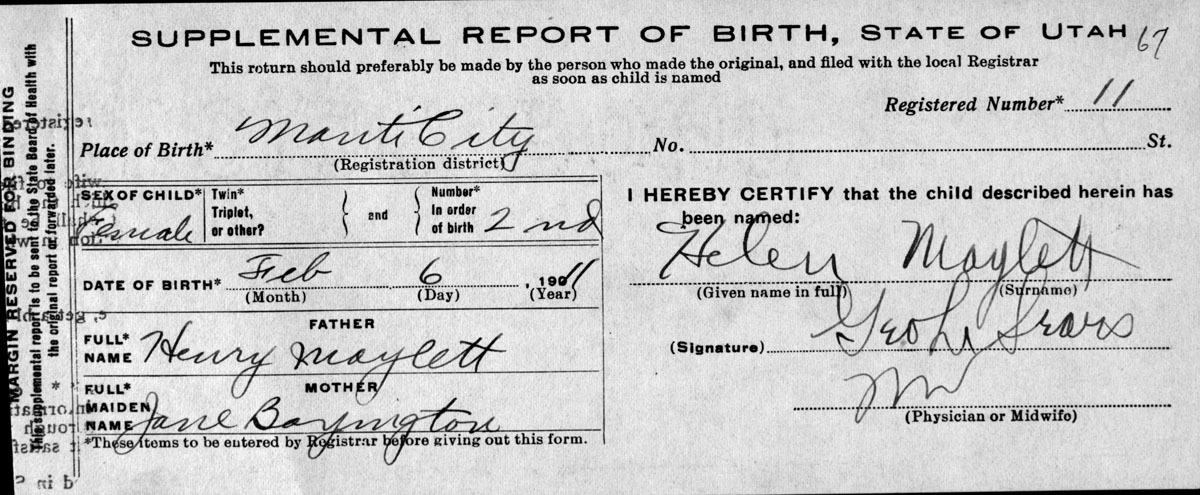 SUPPLEMENTAL REPORT OF BIRTH, STATE OF UTAH 67
This return should preferably be made by the person who made the original, and filed with the local Registrar
as soon as child is named
Registered Number* 11
Place of Birth* Manti City No. St.
(Registration district)
SEX OF CHILD* Female
Twin*
Triplet,
or other?
and
Number*
in order
of birth 2nd
DATE OF BIRTH* Feb 6, 1911
(Month) (Day) (Year)
FATHER
FULL*
NAME Henry Maylett
MOTHER
FULL*
MAIDEN
NAME Jane Boyington
*These items to be entered by Registrar before giving out this form.
I HEREBY CERTIFY that the child described herein has
been named:
Helen Maylett
(Given name in full) (Surname)
(Signature) Geo L Sears
(Physician or Midwife)
MARGIN RESERVED FOR BINDING
This supplemental report is to be sent to the State Board of Health with
the original report or forwarded later. *